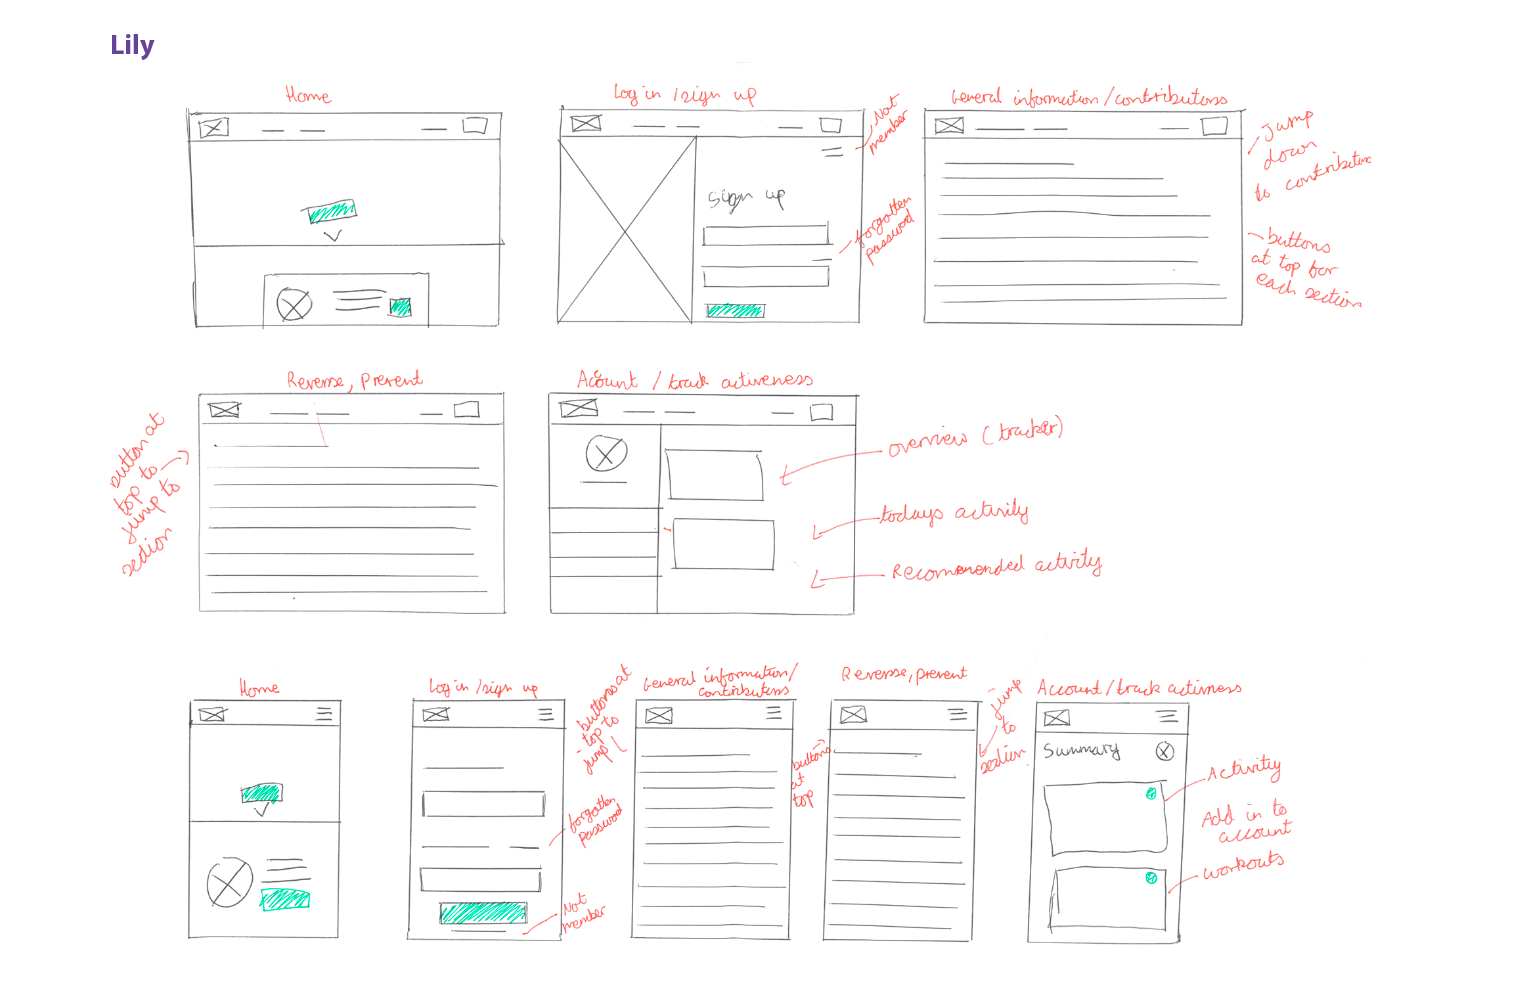 Lily
Home
Log in / sign up
Not
member
sign up
forgotten
password
General information / contributors
Jump
down
to contributors
buttons
at top for
each section
Reverse, prevent
button at
top to
jump to
section
Account / track activeness
overview (tracker)
todays activity
Recommended activity
Home
Log in / sign up
forgotten
password
Not
member
buttons at
top to
jump
General information /
contributors
Reverse, prevent
buttons
at
top
jump
to
section
Account / track activeness
Summary
Activity
Add in to
account
workouts